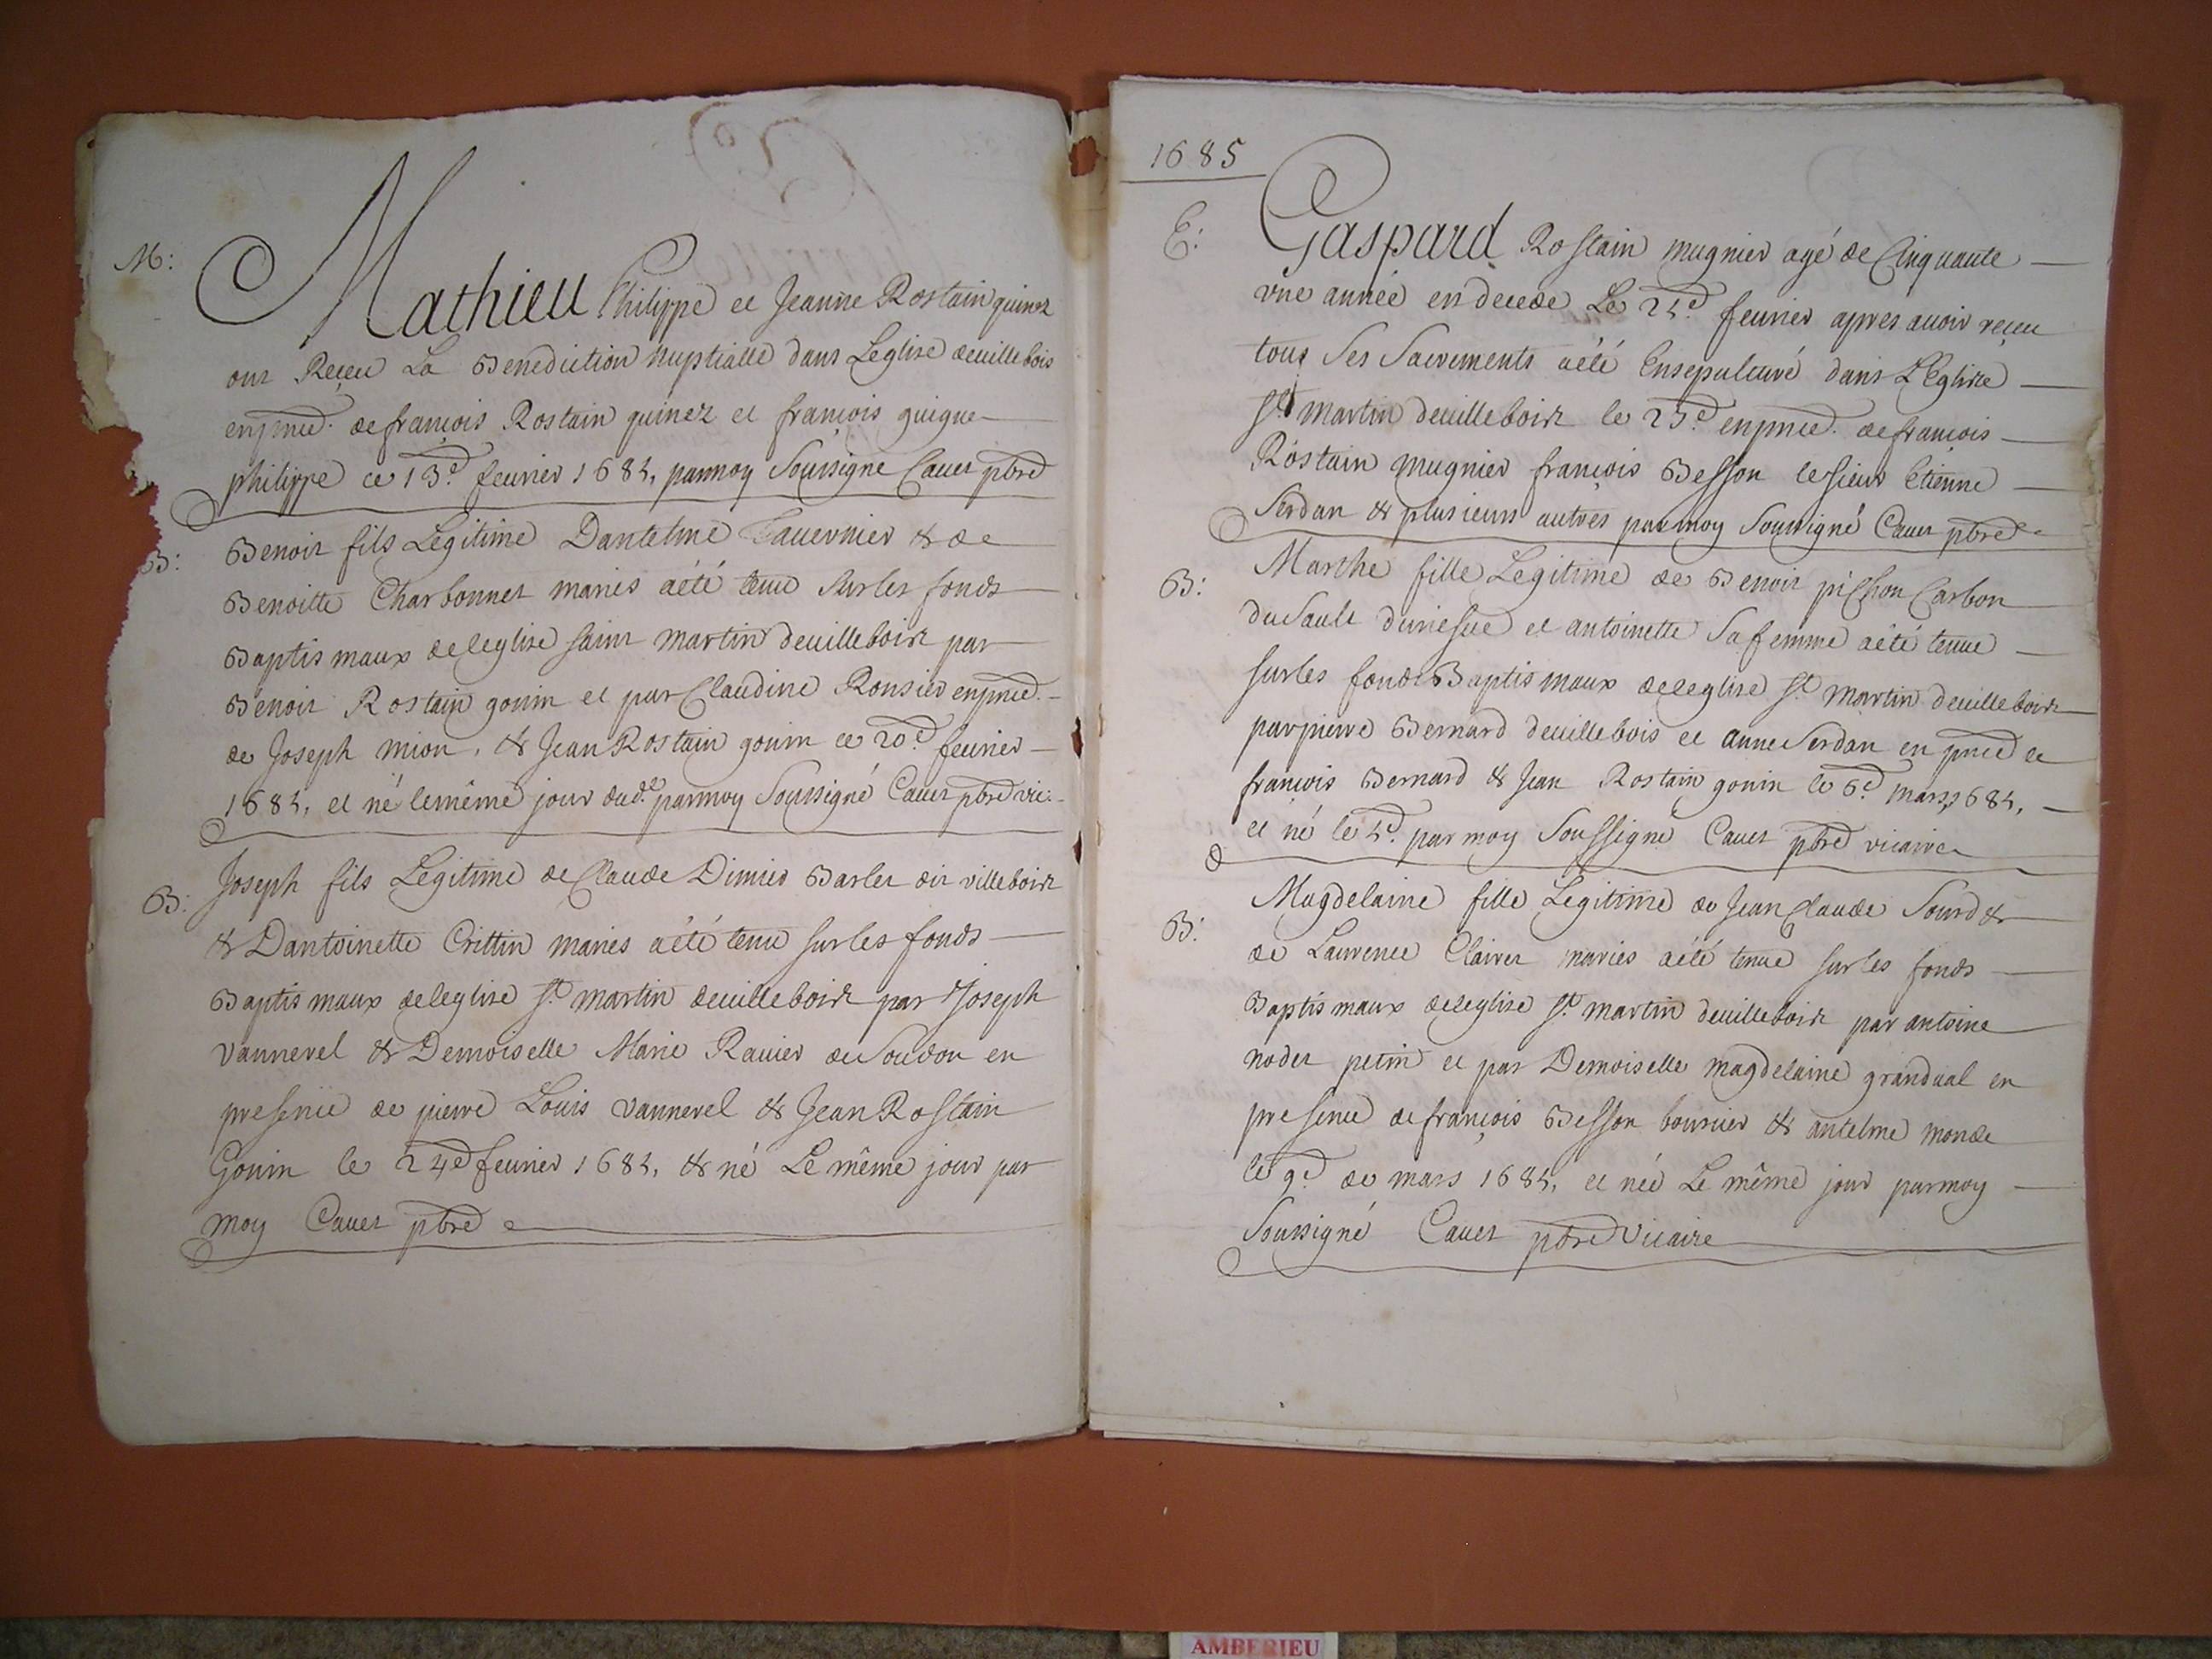 M:
Mathieu Philippe et Jeanne Rostain quinez
ont Reçeu La Benediction nuptialle dans Leglise deuillebois
enpnce. de françois Rostain quinez et françois guigue
philippe ce 13e feurier 1685, parmoy Soussigne Cauet pbre
B:
Benoit fils Legitime Dantelme Tauernier & de
Benoitte Charbonnet mariés aété tenu sur les fonds
Baptismaux deleglise saint martin deuillebois par
Benoit Rostain gonin et par Claudine Ronsier enpnce.
de Joseph mion, & Jean Rostain gonin ce 20e feurier
1685, et né lemême jour dud. parmoy Soussigné Cauet pbre vic.
B:
Joseph fils Legitime de Claude Dimier Barlet dit villebois
& Dantoinette Crittin mariés aété tenu sur les fonds
Baptismaux deleglise st. martin deuillebois par Joseph
vannerel & Demoiselle Marie Rauier de Soudon en
presence de pierre Louis vannerel & Jean Rostain
Gonin le 24e feurier 1685, & né Le même jour par
moy Cauet pbre
1685
E:
Gaspard Rostain mugnier agé de Cinquante
vne année en decede Le 24e feurier apres auoir reçeu
tous Ses Sacrements aété Ensepulturé dans L'Eglise
st martin deuillebois le 25e enpnce. de françois
Rostain mugnier françois Besson le sieur Etienne
Serdan & plusieurs autres parmoy Soussigné Cauet pbre
B:
Marthe fille Legitime de Benoit pichon Carbon
du Sault et antoinette Sa femme aété tenue
sur les fonds Baptismaux deleglise st. martin deuillebois
par pierre Bernard deuillebois et anne Serdan en pnce de
françois Bernard & Jean Rostain gonin le 6e mars 1685,
et né le 5e. par moy Soussigné Cauet pbre vicaire
B:
Magdelaine fille Legitime de Jean Claude Sourd &
de Laurence Clairet mariés aété tenue sur les fonds
Baptismaux deleglise st. martin deuillebois par antoine
nodet petin et par Demoiselle magdelaine grandual en
presence de françois Besson boursier & antelme monde
le 9e. de mars 1685, et née Le même jour parmoy
Soussigné Cauet pbre Vicaire
AMBERIEU